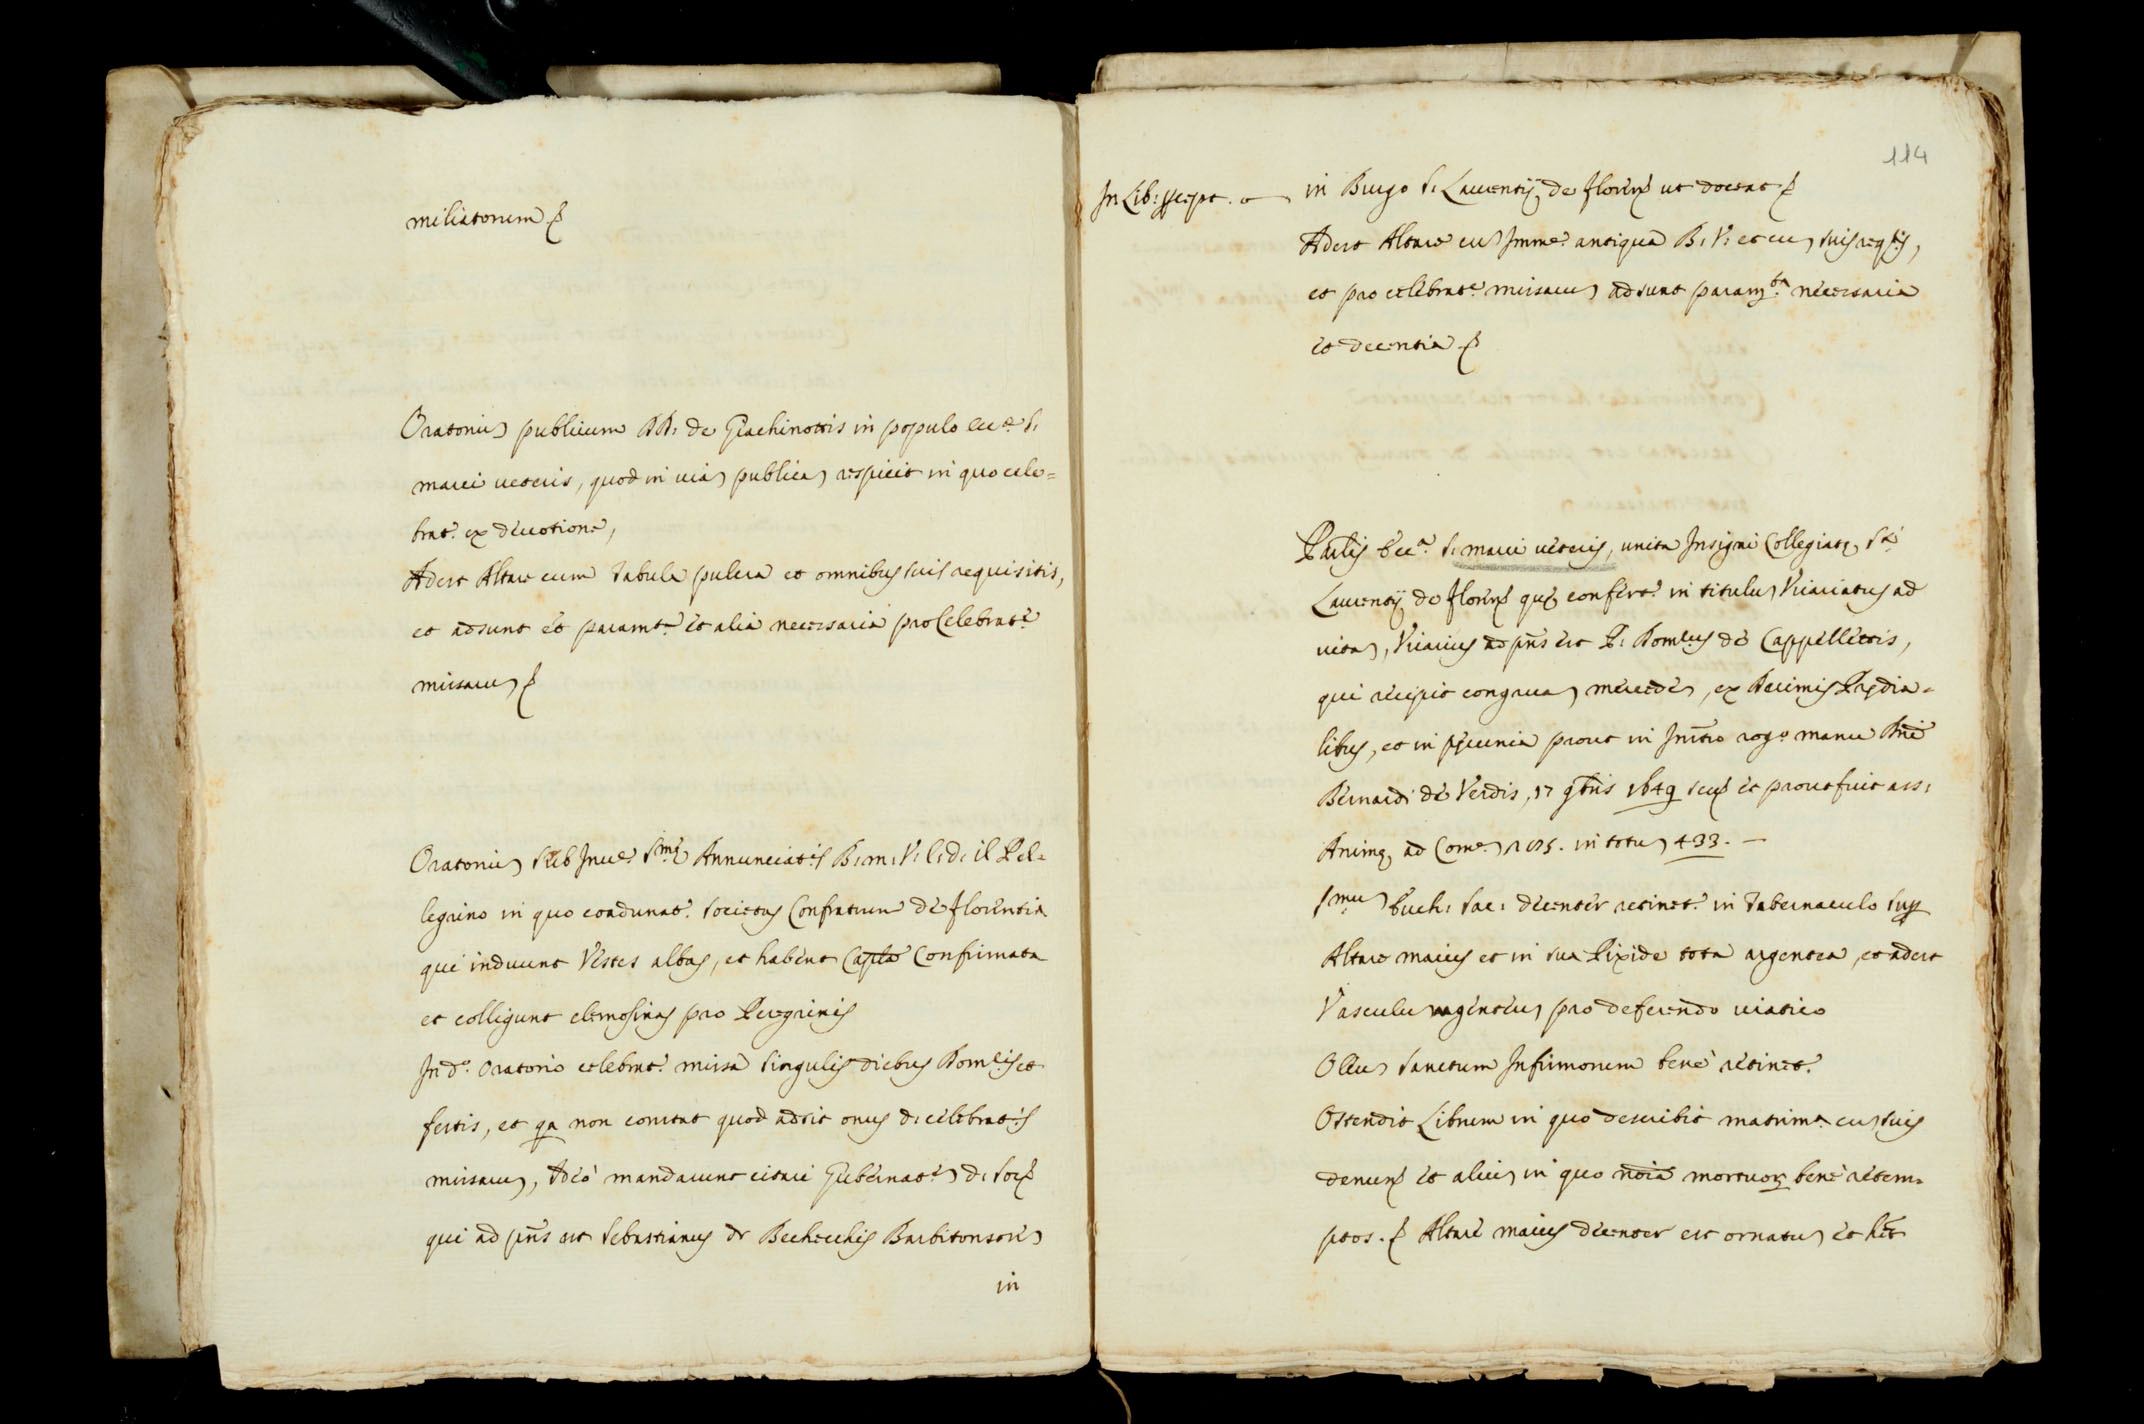 miliatorum
Oratoriu publicum DD: de Giachinottis in populo Ecc.e S.
marci veteris, quod in via publica respicit in quo cele=
brat.r ex devotione,
Adest Altare cum tabula pulcra et omnibus suis requisitis,
et adsunt et paramt.a et alia necessaria pro Celebrat.e
missaru
Oratoriu sub Invoc.e S.me Annunciat.is B. M. V. l. d. il Pel=
legrino in quo coadunat.r Societas Confratrum de Florentia
qui induunt Vestes albas, et habent Capla Confirmata
et colligunt elemosinas pro Peregrinis
In d.o Oratorio celebrat.r missa singulis diebus Domcis et
festis, et qa non constat quod adsit onus d. celebrat.is
missaru, Adeo mandarunt citari Gubernat.e d. Soc.
qui ad pns est Sebastianus de Bechecchis Barbitonsore
in
114
In Lib:
in Burgo S. Laurentij de Floren. ut doceat
Adest Altare cu Imme. antiqua B. V. et cu suis reqs.tis,
et pro celebrat.e missaru adsunt paramta necessaria
et decentia
Parlis Ecc.a S. marci veteris, unita Insigni Collegiatę S.ti
Laurentij de Floren. quę confert.r in titulu Vicariatus ad
vita, Vicarius ad pns est P. Domcus de Cappellettis,
qui recipit congrua mercede, ex Decimis Prędia=
libus, et in pecunia prout in Instro rog.o manu Dni
Bernardi de Verdis, 17 9bris 1649 seu et prout fuit ass.
Animę ad Com.e 205. in totu 433. –
S.mu Euch. Sac. decenter retinet.r in Tabernaculo sup
Altare maius et in sua Pixide tota argentea, et adest
Vasculu argenteu pro deferendo viatico
Oleu Sanctum Infirmorum bene retinet.r
Ostendit Librum in quo describit matrim.a cu suis
denun. et aliu in quo noia mortuor. bene retem=
ptos. Altare maius decenter est ornatu et het